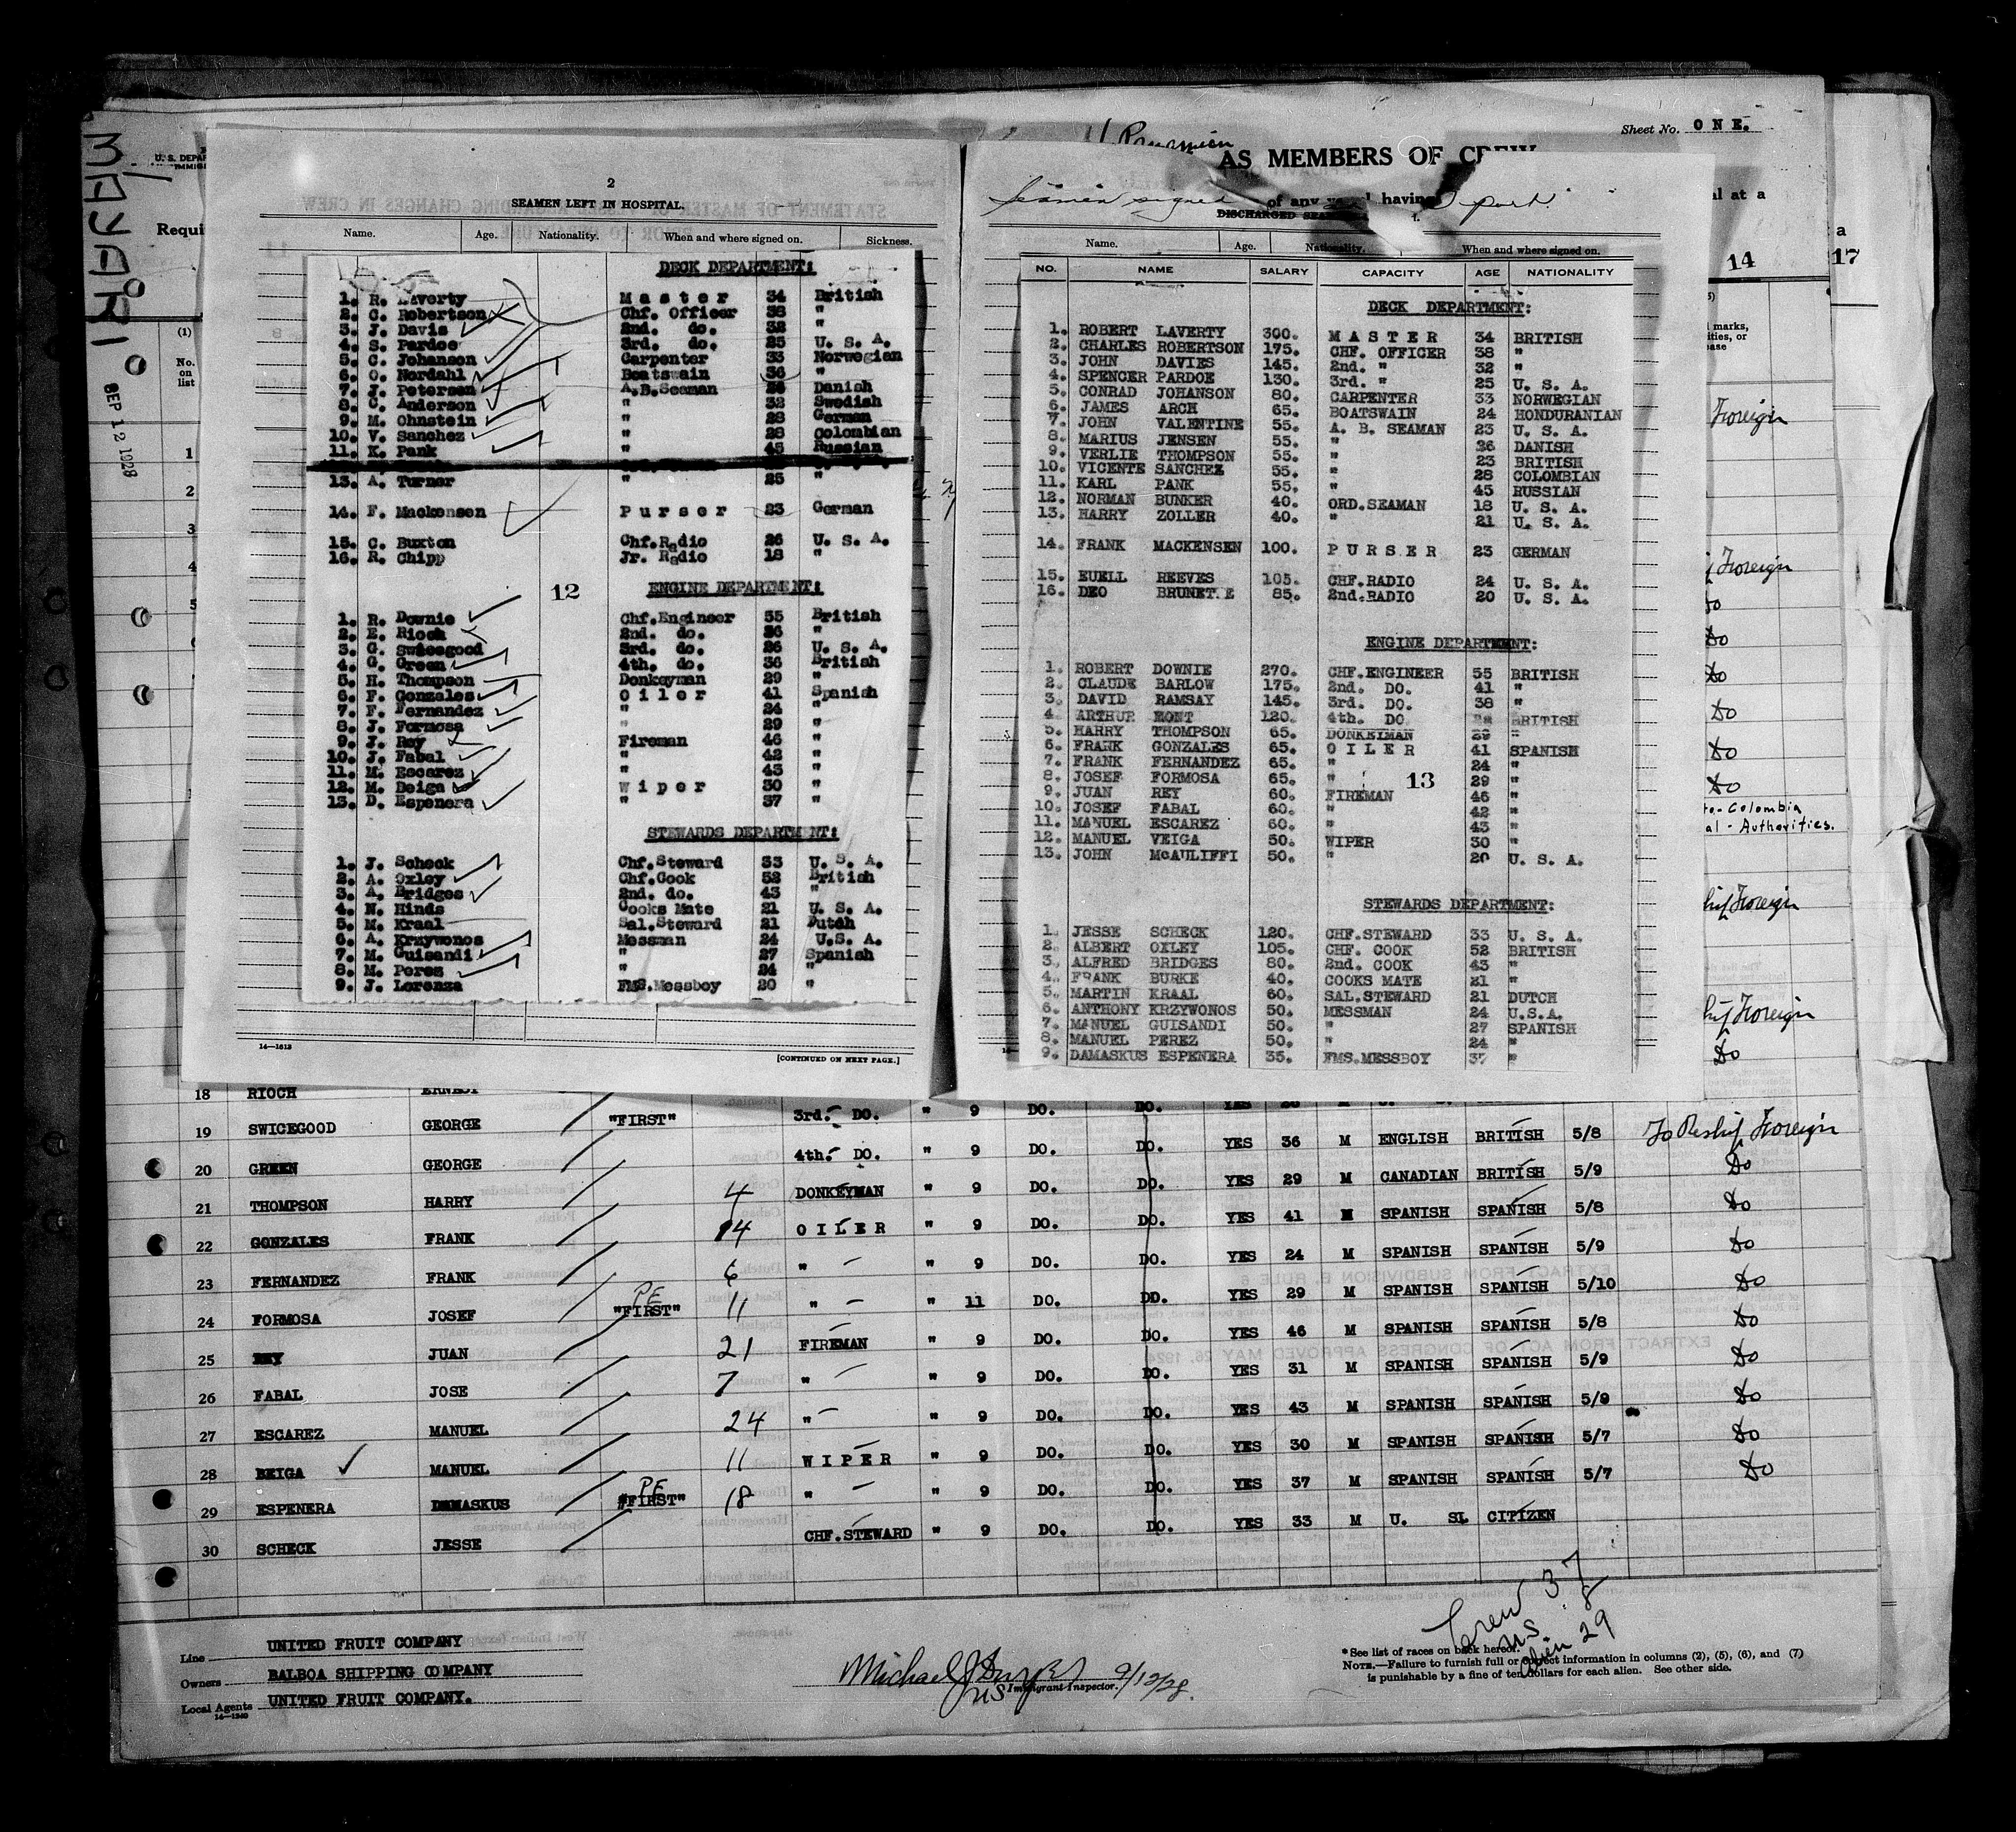 Sheet No. ONE.
Panamian
AS MEMBERS OF CREW
MAYARI
SEP 12 1928
U. S. DEPAR
IMMIG
Requi
(1)
No. on list
1
2
3
4
5
2
SEAMEN LEFT IN HOSPITAL.
Name. Age. Nationality. When and where signed on. Sickness.
DECK DEPARTMENT:
1. R. Laverty Master 34 British
2. C. Robertson Chf. Officer 38 "
3. J. Davis 2nd. do. 32 "
4. S. Pardoe 3rd. do. 25 U. S. A.
5. C. Johansen Carpenter 33 Norwegian
6. O. Nordahl Boatswain 36 "
7. J. Petersen A.B.Seaman 26 Danish
8. C. Anderson " 32 Swedish
9. M. Ohnstein " 28 German
10. V. Sanchez " 28 Colombian
11. K. Pank " 45 Russian
13. A. Turner " 25 "
14. F. Mackensen Purser 23 German
15. C. Buxton Chf.Radio 26 U. S. A.
16. R. Chipp Jr. Radio 18 "
12
ENGINE DEPARTMENT:
1. R. Downie Chf.Engineer 55 British
2. E. Rioch 2nd. do. 26 "
3. G. Swicegood 3rd. do. 26 U. S. A.
4. G. Green 4th. do. 36 British
5. H. Thompson Donkeyman 29 "
6. F. Gonzales Oiler 41 Spanish
7. F. Fernandez " 24 "
8. J. Formosa " 29 "
9. J. Rey Fireman 46 "
10. J. Fabal " 42 "
11. M. Escarez " 43 "
12. M. Beiga Wiper 30 "
13. D. Espenera " 37 "
STEWARDS DEPARTMENT:
1. J. Scheck Chf.Steward 33 U. S. A.
2. A. Oxley Chf.Cook 52 British
3. A. Bridges 2nd. do. 43 "
4. N. Hinds Cooks Mate 21 U. S. A.
5. M. Kraal Sal.Steward 21 Dutch
6. A. Krzywonos Messman 24 U.S. A.
7. M. Guisandi " 27 Spanish
8. M. Perez " 24 "
9. J. Lorenza FMS.Messboy 20 "
14—1613
[CONTINUED ON NEXT PAGE.]
Seamen signed port.
of any vessel having
Name. Age. Nationality. When and where signed on.
NO. NAME SALARY CAPACITY AGE NATIONALITY
DECK DEPARTMENT:
1. ROBERT LAVERTY 300. MASTER 34 BRITISH
2. CHARLES ROBERTSON 175. CHF. OFFICER 38 "
3. JOHN DAVIES 145. 2nd. " 32 "
4. SPENCER PARDOE 130. 3rd. " 25 U. S. A.
5. CONRAD JOHANSON 80. CARPENTER 33 NORWEGIAN
6. JAMES ARCH 65. BOATSWAIN 24 HONDURANIAN
7. JOHN VALENTINE 55. A. B. SEAMAN 23 U. S. A.
8. MARIUS JENSEN 55. " 26 DANISH
9. VERLIE THOMPSON 55. " 23 BRITISH
10. VICENTE SANCHEZ 55. " 28 COLOMBIAN
11. KARL PANK 55. " 45 RUSSIAN
12. NORMAN BUNKER 40. ORD.SEAMAN 18 U. S. A.
13. HARRY ZOLLER 40. " 21 U. S. A.
14. FRANK MACKENSEN 100. PURSER 23 GERMAN
15. EUELL REEVES 105. CHF.RADIO 24 U. S. A.
16. DEO BRUNETTE 85. 2nd.RADIO 20 U. S. A.
ENGINE DEPARTMENT:
1. ROBERT DOWNIE 270. CHF.ENGINEER 55 BRITISH
2. CLAUDE BARLOW 175. 2nd. DO. 41 "
3. DAVID RAMSAY 145. 3rd. DO. 38 "
4. ARTHUR 120. 4th. DO BRITISH
5. HARRY THOMPSON 65. DONKEYMAN 29 "
6. FRANK GONZALES 65. OILER 41 SPANISH
7. FRANK FERNANDEZ 65. " 24 "
8. JOSEF FORMOSA 65. " 13 29 "
9. JUAN REY 60. FIREMAN 46 "
10. JOSEF FABAL 60. " 42 "
11. MANUEL ESCAREZ 60. " 43 "
12. MANUEL VEIGA 50. WIPER 30 "
13. JOHN McAULIFFI 50. " 20 U. S. A.
STEWARDS DEPARTMENT:
1. JESSE SCHECK 120. CHF.STEWARD 33 U. S. A.
2. ALBERT OXLEY 105. CHF. COOK 52 BRITISH
3. ALFRED BRIDGES 80. 2nd. COOK 43 "
4. FRANK BURKE 40. COOKS MATE 21 "
5. MARTIN KRAAL 60. SAL.STEWARD 21 DUTCH
6. ANTHONY KRZYWONOS 50. MESSMAN 24 U.S.A.
7. MANUEL GUISANDI 50. " 27 SPANISH
8. MANUEL PEREZ 50. " 24 "
9. DAMASKUS ESPENERA 35. FMS.MESSBOY 37 "
al at a
14
17
marks,
ities, or
ease
Foreign
Foreign
Do
Do
Do
Do
Do
Do
to-Colombia
al-Authorities.
Foreign
Foreign
Do
18 RIOCH ERNEST
19 SWICEGOOD GEORGE "FIRST" 3rd. DO. " 9 DO. DO. YES 26 M U. S.
20 GREEN GEORGE 4th. DO. " 9 DO. DO. YES 36 M ENGLISH BRITISH 5/8 To Reship Foreign
21 THOMPSON HARRY 4 DONKEYMAN " 9 DO. DO. YES 29 M CANADIAN BRITISH 5/9 Do
22 GONZALES FRANK 14 OILER " 9 DO. DO. YES 41 M SPANISH SPANISH 5/8 Do
23 FERNANDEZ FRANK 6 " " 9 DO. DO. YES 24 M SPANISH SPANISH 5/9 Do
24 FORMOSA JOSEF PE "FIRST" 11 " " 11 DO. DO. YES 29 M SPANISH SPANISH 5/10 Do
25 REY JUAN 21 FIREMAN " 9 DO. DO. YES 46 M SPANISH SPANISH 5/8 Do
26 FABAL JOSE 7 " " 9 DO. DO. YES 31 M SPANISH SPANISH 5/9 Do
27 ESCAREZ MANUEL 24 " " 9 DO. DO. YES 43 M SPANISH SPANISH 5/9 Do
28 BEIGA MANUEL 11 WIPER " 9 DO. DO. YES 30 M SPANISH SPANISH 5/7 Do
29 ESPENERA DAMASKUS PE "FIRST" 18 " " 9 DO. DO. YES 37 M SPANISH SPANISH 5/7 Do
30 SCHECK JESSE CHF.STEWARD " 9 DO. DO. YES 33 M U. S. CITIZEN
Crew 37
US. 8
Alien 29
Line UNITED FRUIT COMPANY
Owners BALBOA SHIPPING COMPANY
Local Agents UNITED FRUIT COMPANY.
14—1240
Michael J
US Immigrant Inspector. 9/12/28.
* See list of races on back hereof.
NOTE.—Failure to furnish full or correct information in columns (2), (5), (6), and (7)
is punishable by a fine of ten dollars for each alien. See other side.